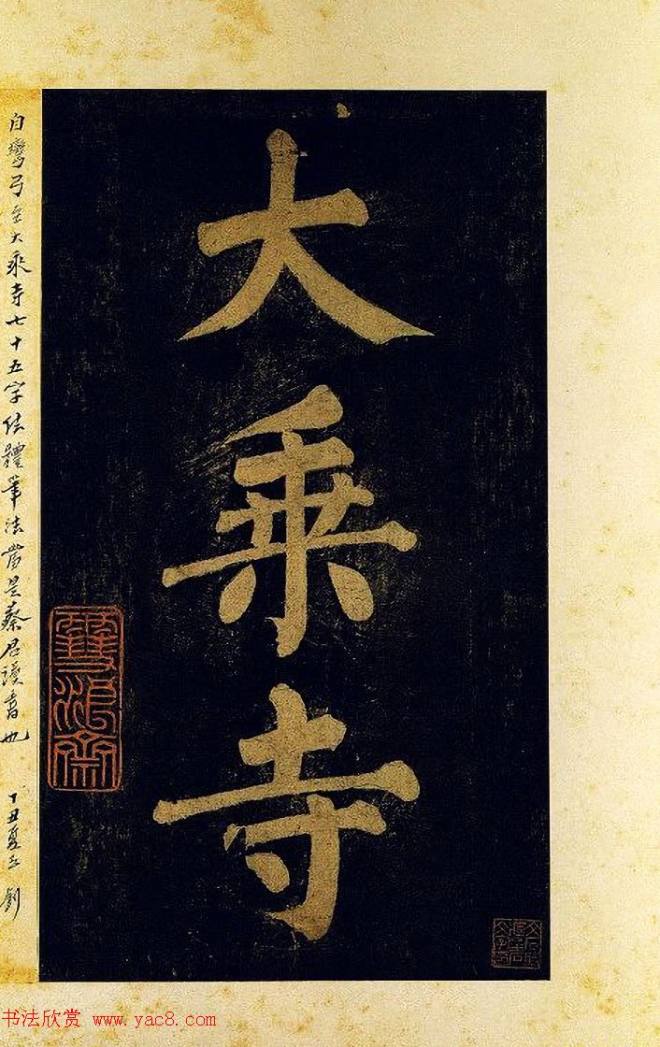 大乘寺
自彎弓至大乘寺七十五字結體筆法當是蔡君謨書也
丁丑夏五
书法欣赏 www.yac8.com